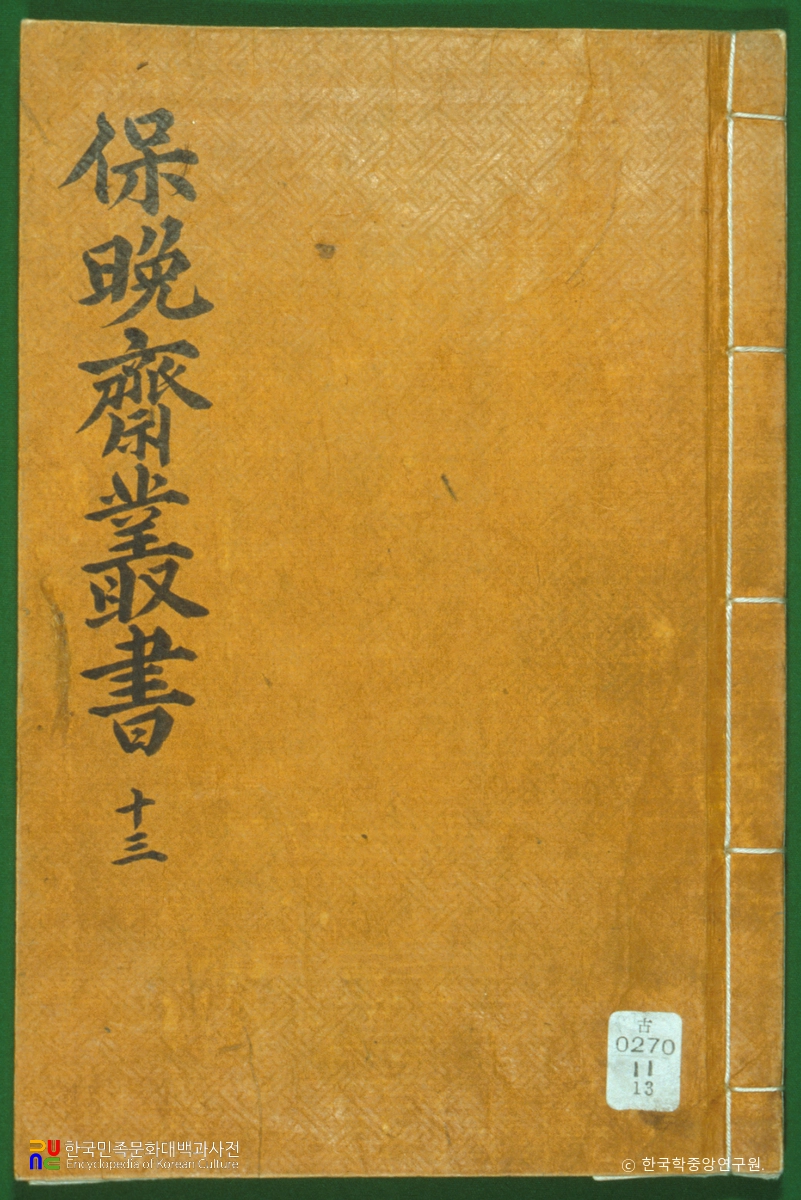 保晩齋叢書
十三
古
0270
11
13
한국민족문화대백과사전
Encyclopedia of Korean Culture
© 한국학중앙연구원.